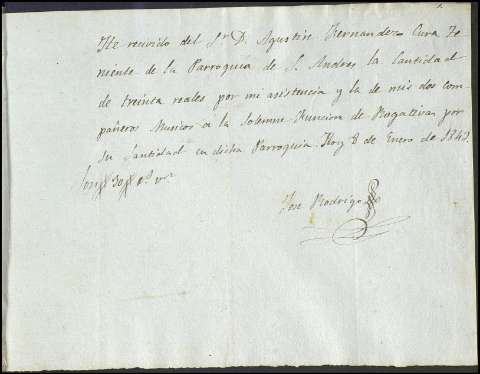 He recivido del Sr. D. Agustin Hernandez Cura Te-
niente de la Parroquia de S. Andres la Cantidad
de treinta reales por mi asistencia y la de mis dos com-
pañeros Musicos á la solemne Funcion de Rogativa, por
su Santidad en dicha Parroquia. Hoy 8 de Enero de 1847.
Son 30 rs. vn.
Jose Rodrigo